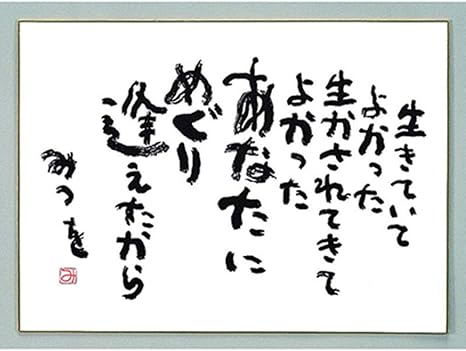 生きていて
よかった
生かされてきて
よかった
あなたに
めぐり
逢えたから
みつを
み